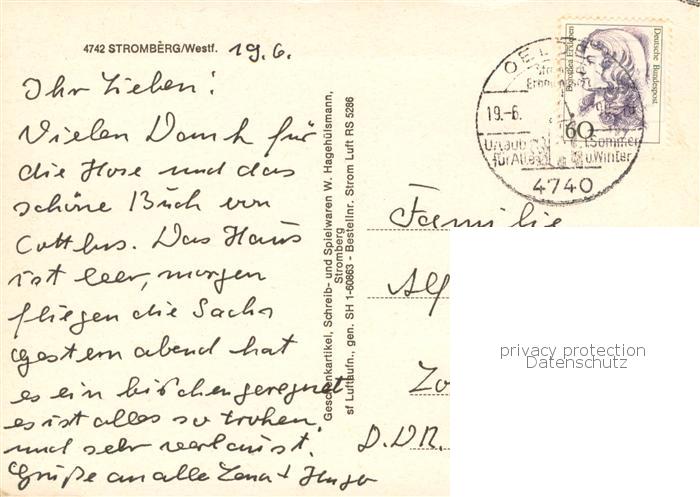 4742 STROMBERG/Westf. 19.6.
Ihr Lieben!
Vielen Dank für
die Hose und das
schöne Buch von
Cottbus. Das Haus
ist leer, morgen
fliegen die Sachs
Gestern abend hat
es ein bißchen geregnet
es ist alles so trocken,
und sehr verlaust.
Grüße an alle Lena + Hugo
Geschenkartikel, Schreib- und Spielwaren W. Hagehülsmann,
Stromberg
sf Luftaufn., gen. SH 1-60863 - Bestellnr. Strom Luft RS 5286
OEL
19.-6.
Urlaub
für Alle
i.Sommer
u.Winter
4740
Dorothea Erxleben
Deutsche Bundespost
60
Familie
Alf
Zo
D.D.R.
privacy protection
Datenschutz